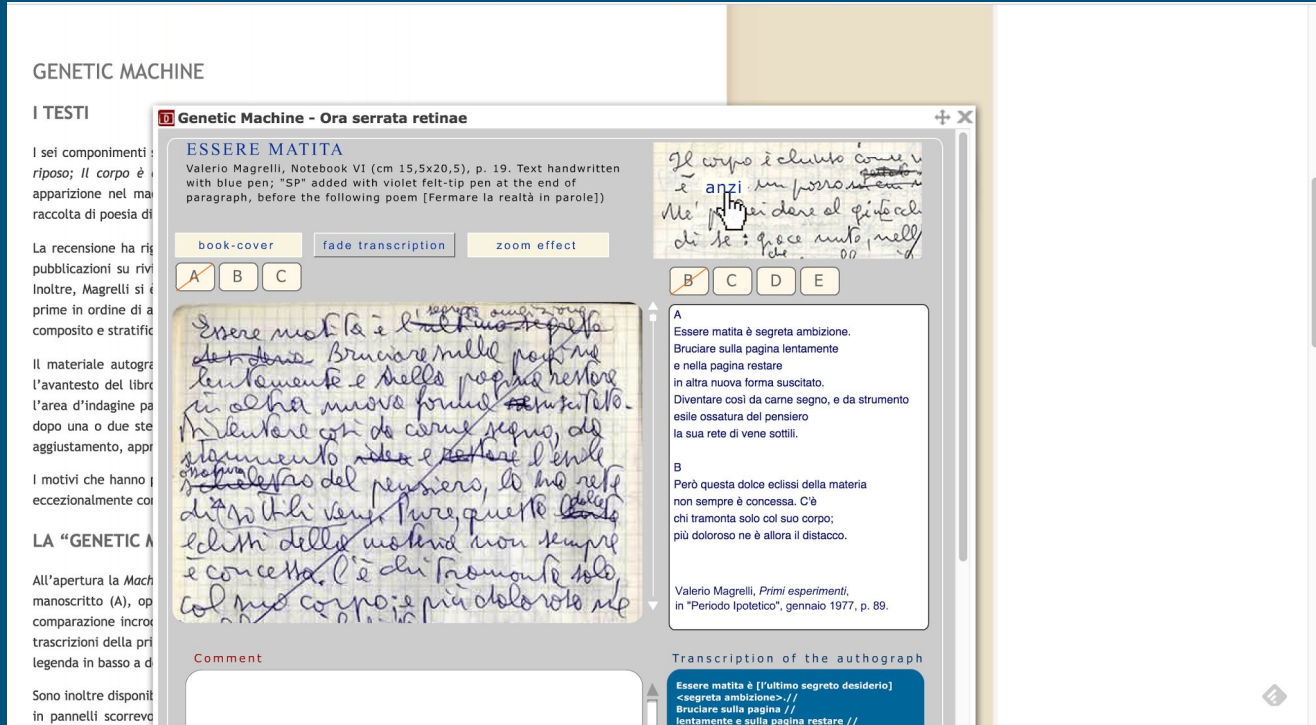 GENETIC MACHINE
I TESTI
I sei componimenti s
riposo; Il corpo è
apparizione nel mac
raccolta di poesia di
La recensione ha rig
pubblicazioni su rivi
Inoltre, Magrelli si è
prime in ordine di a
composito e stratific
Il materiale autogra
l'avantesto del libro
l'area d'indagine pa
dopo una o due ste
aggiustamento, appr
I motivi che hanno p
eccezionalmente con
LA “GENETIC M
All'apertura la Mach
manoscritto (A), op
comparazione incroc
trascrizioni della pri
legenda in basso a d
Sono inoltre disponib
in pannelli scorrevo
Genetic Machine - Ora serrata retinae
ESSERE MATITA
Valerio Magrelli, Notebook VI (cm 15,5x20,5), p. 19. Text handwritten
with blue pen; "SP" added with violet felt-tip pen at the end of
paragraph, before the following poem [Fermare la realtà in parole])
book-cover fade transcription zoom effect
A B C
Il corpo è chiuso come
è anzi un pozzo
di se:
B C D E
segreta ambizione
Essere matita è l'ultimo segreto
desiderio. Bruciare sulla pagina
lentamente e sulla pagina restare
in altra nuova forma suscitato.
Diventare così da carne segno, da
strumento idea e restare l'esile
ossatura
scheletro del pensiero, la sua rete
di sottili vene. Pure, questa dolce
eclissi della materia non sempre
è concessa. C'è chi tramonta solo
col suo corpo; e più doloroso ne
A
Essere matita è segreta ambizione.
Bruciare sulla pagina lentamente
e nella pagina restare
in altra nuova forma suscitato.
Diventare così da carne segno, e da strumento
esile ossatura del pensiero
la sua rete di vene sottili.
B
Però questa dolce eclissi della materia
non sempre è concessa. C'è
chi tramonta solo col suo corpo;
più doloroso ne è allora il distacco.
Valerio Magrelli, Primi esperimenti,
in "Periodo Ipotetico", gennaio 1977, p. 89.
Comment
Transcription of the authograph
Essere matita è [l'ultimo segreto desiderio]
<segreta ambizione>.//
Bruciare sulla pagina //
lentamente e sulla pagina restare //